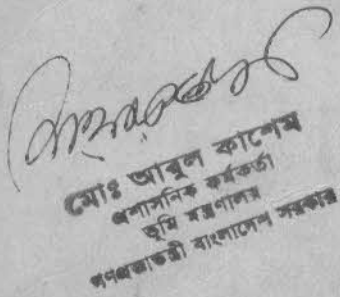 মোঃ আবুল কাশেম
প্রশাসনিক কর্মকর্তা
ভূমি মন্ত্রণালয়
গণপ্রজাতন্ত্রী বাংলাদেশ সরকার